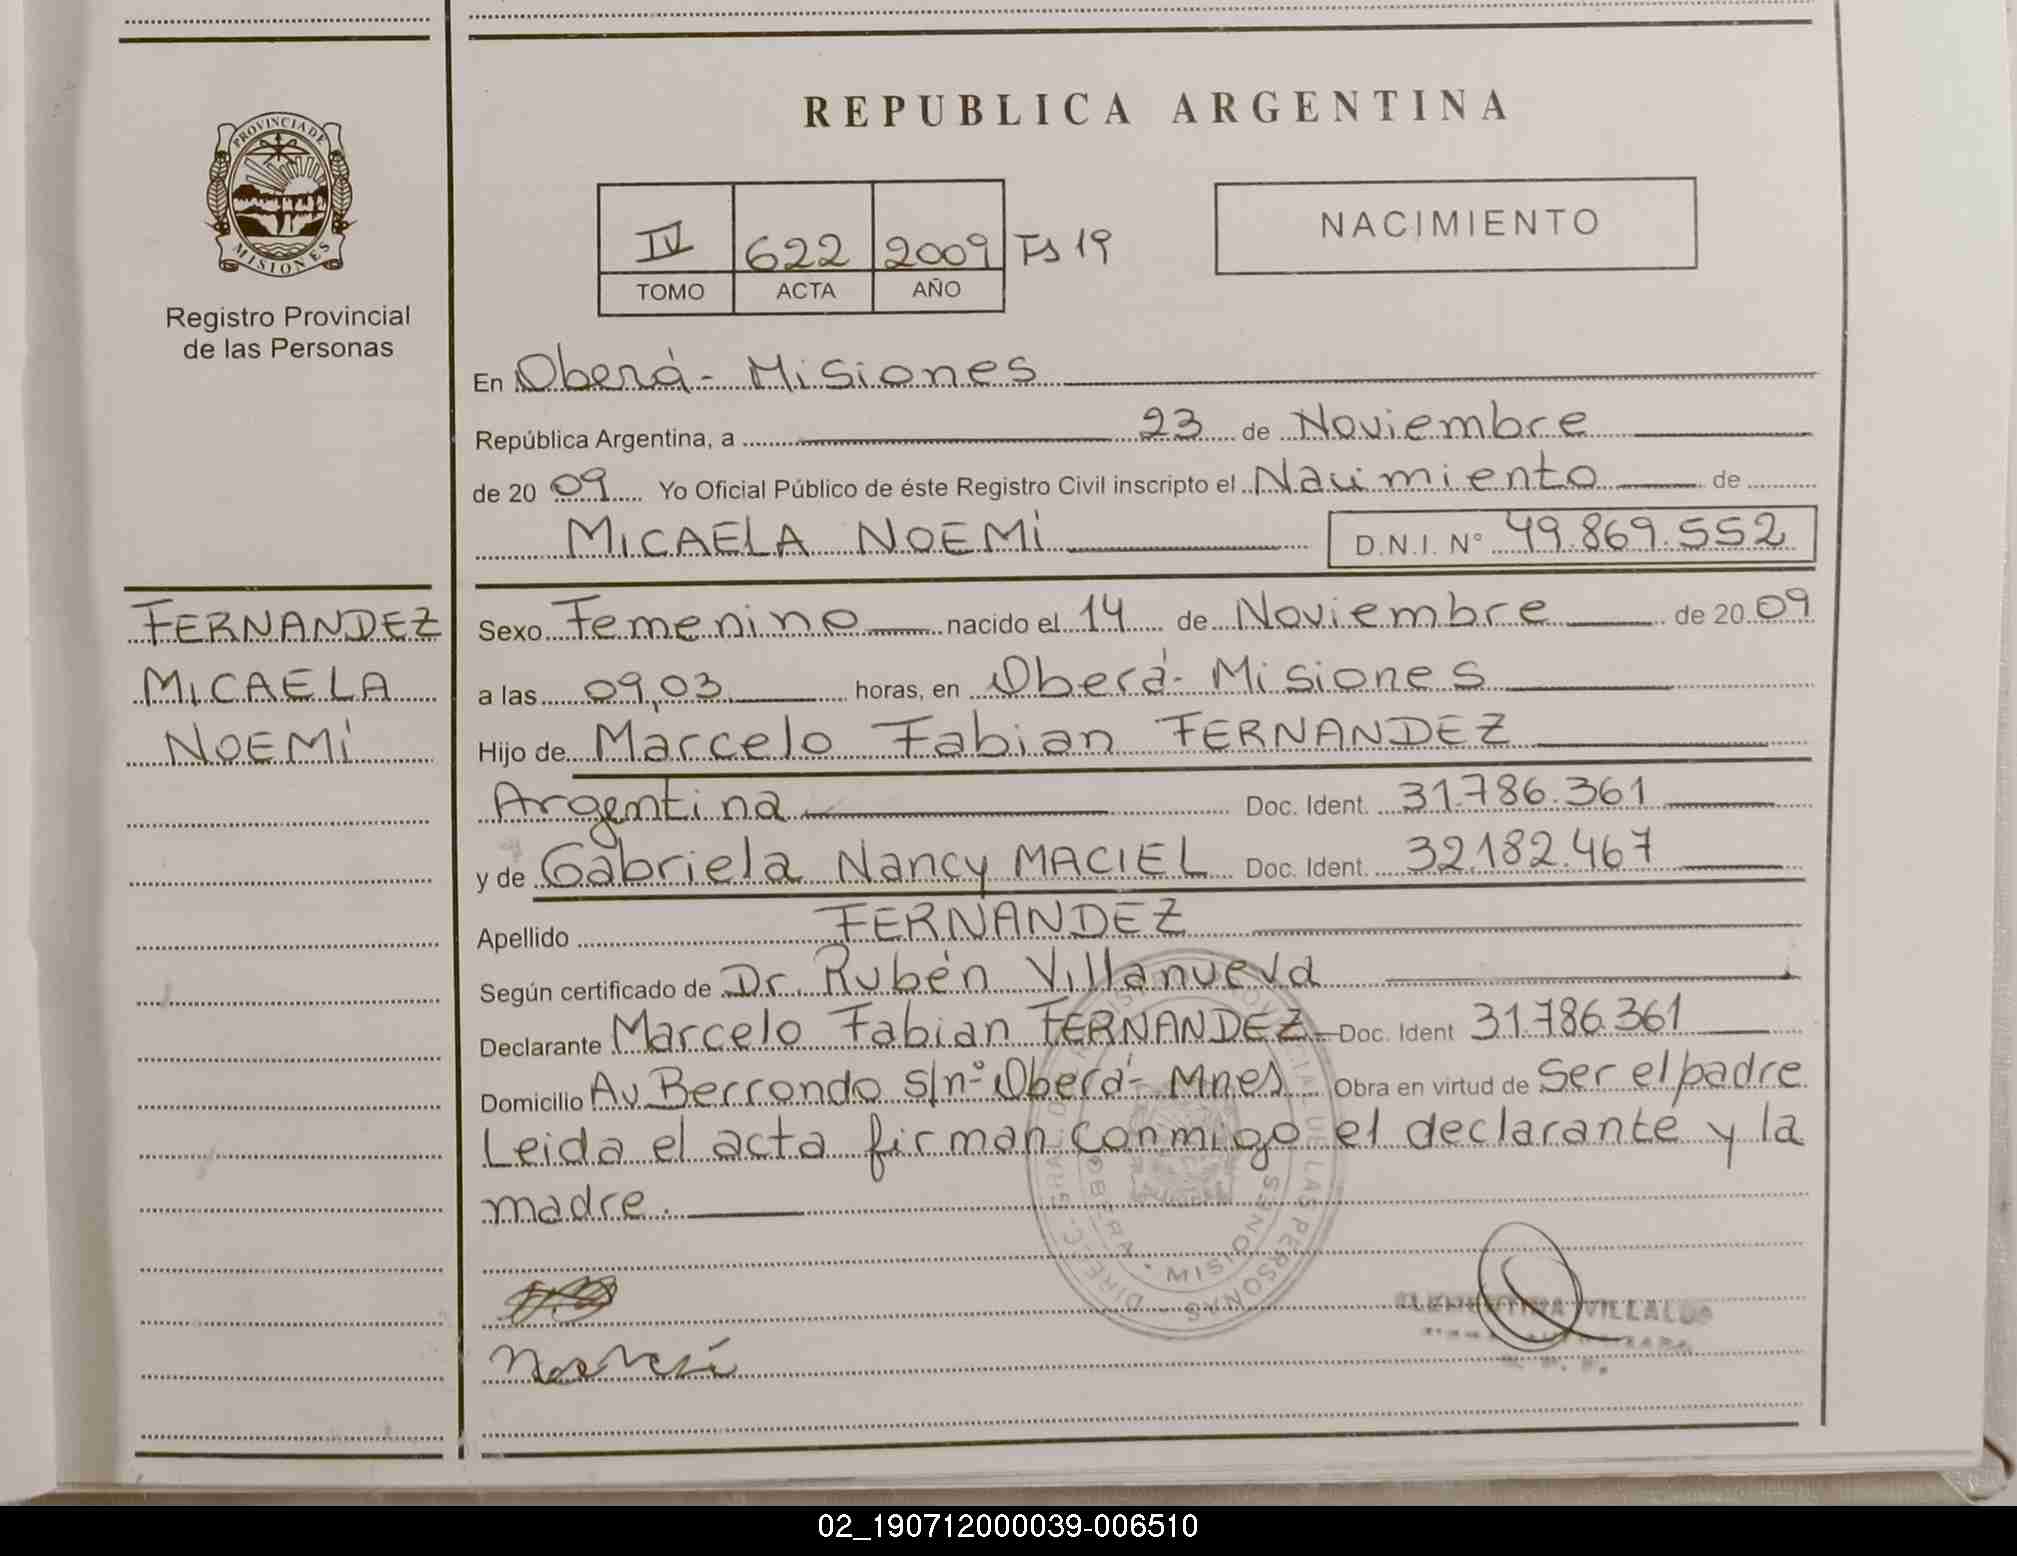 PROVINCIA DE
MISIONES
Registro Provincial
de las Personas
FERNANDEZ
MICAELA
NOEMÍ
REPUBLICA ARGENTINA
IV 622 2009 Fs 19
TOMO ACTA AÑO
NACIMIENTO
En Oberá - Misiones
República Argentina, a 23 de Noviembre
de 20 09 Yo Oficial Público de éste Registro Civil inscripto el Nacimiento de
MICAELA NOEMÍ D.N.I. N° 49.869.552
Sexo Femenino nacido el 14 de Noviembre de 20 09
a las 09,03 horas, en Oberá - Misiones
Hijo de Marcelo Fabian FERNANDEZ
Argentina Doc. Ident. 31.786.361
y de Gabriela Nancy MACIEL Doc. Ident. 32.182.467
Apellido FERNANDEZ
Según certificado de Dr. Rubén Villanueva
Declarante Marcelo Fabian FERNANDEZ Doc. Ident 31.786.361
Domicilio Av Berrondo s/n° Oberá - Mnes Obra en virtud de Ser el padre
Leida el acta firman conmigo el declarante y la
madre.
OBERA • MISIONES
02_190712000039-006510